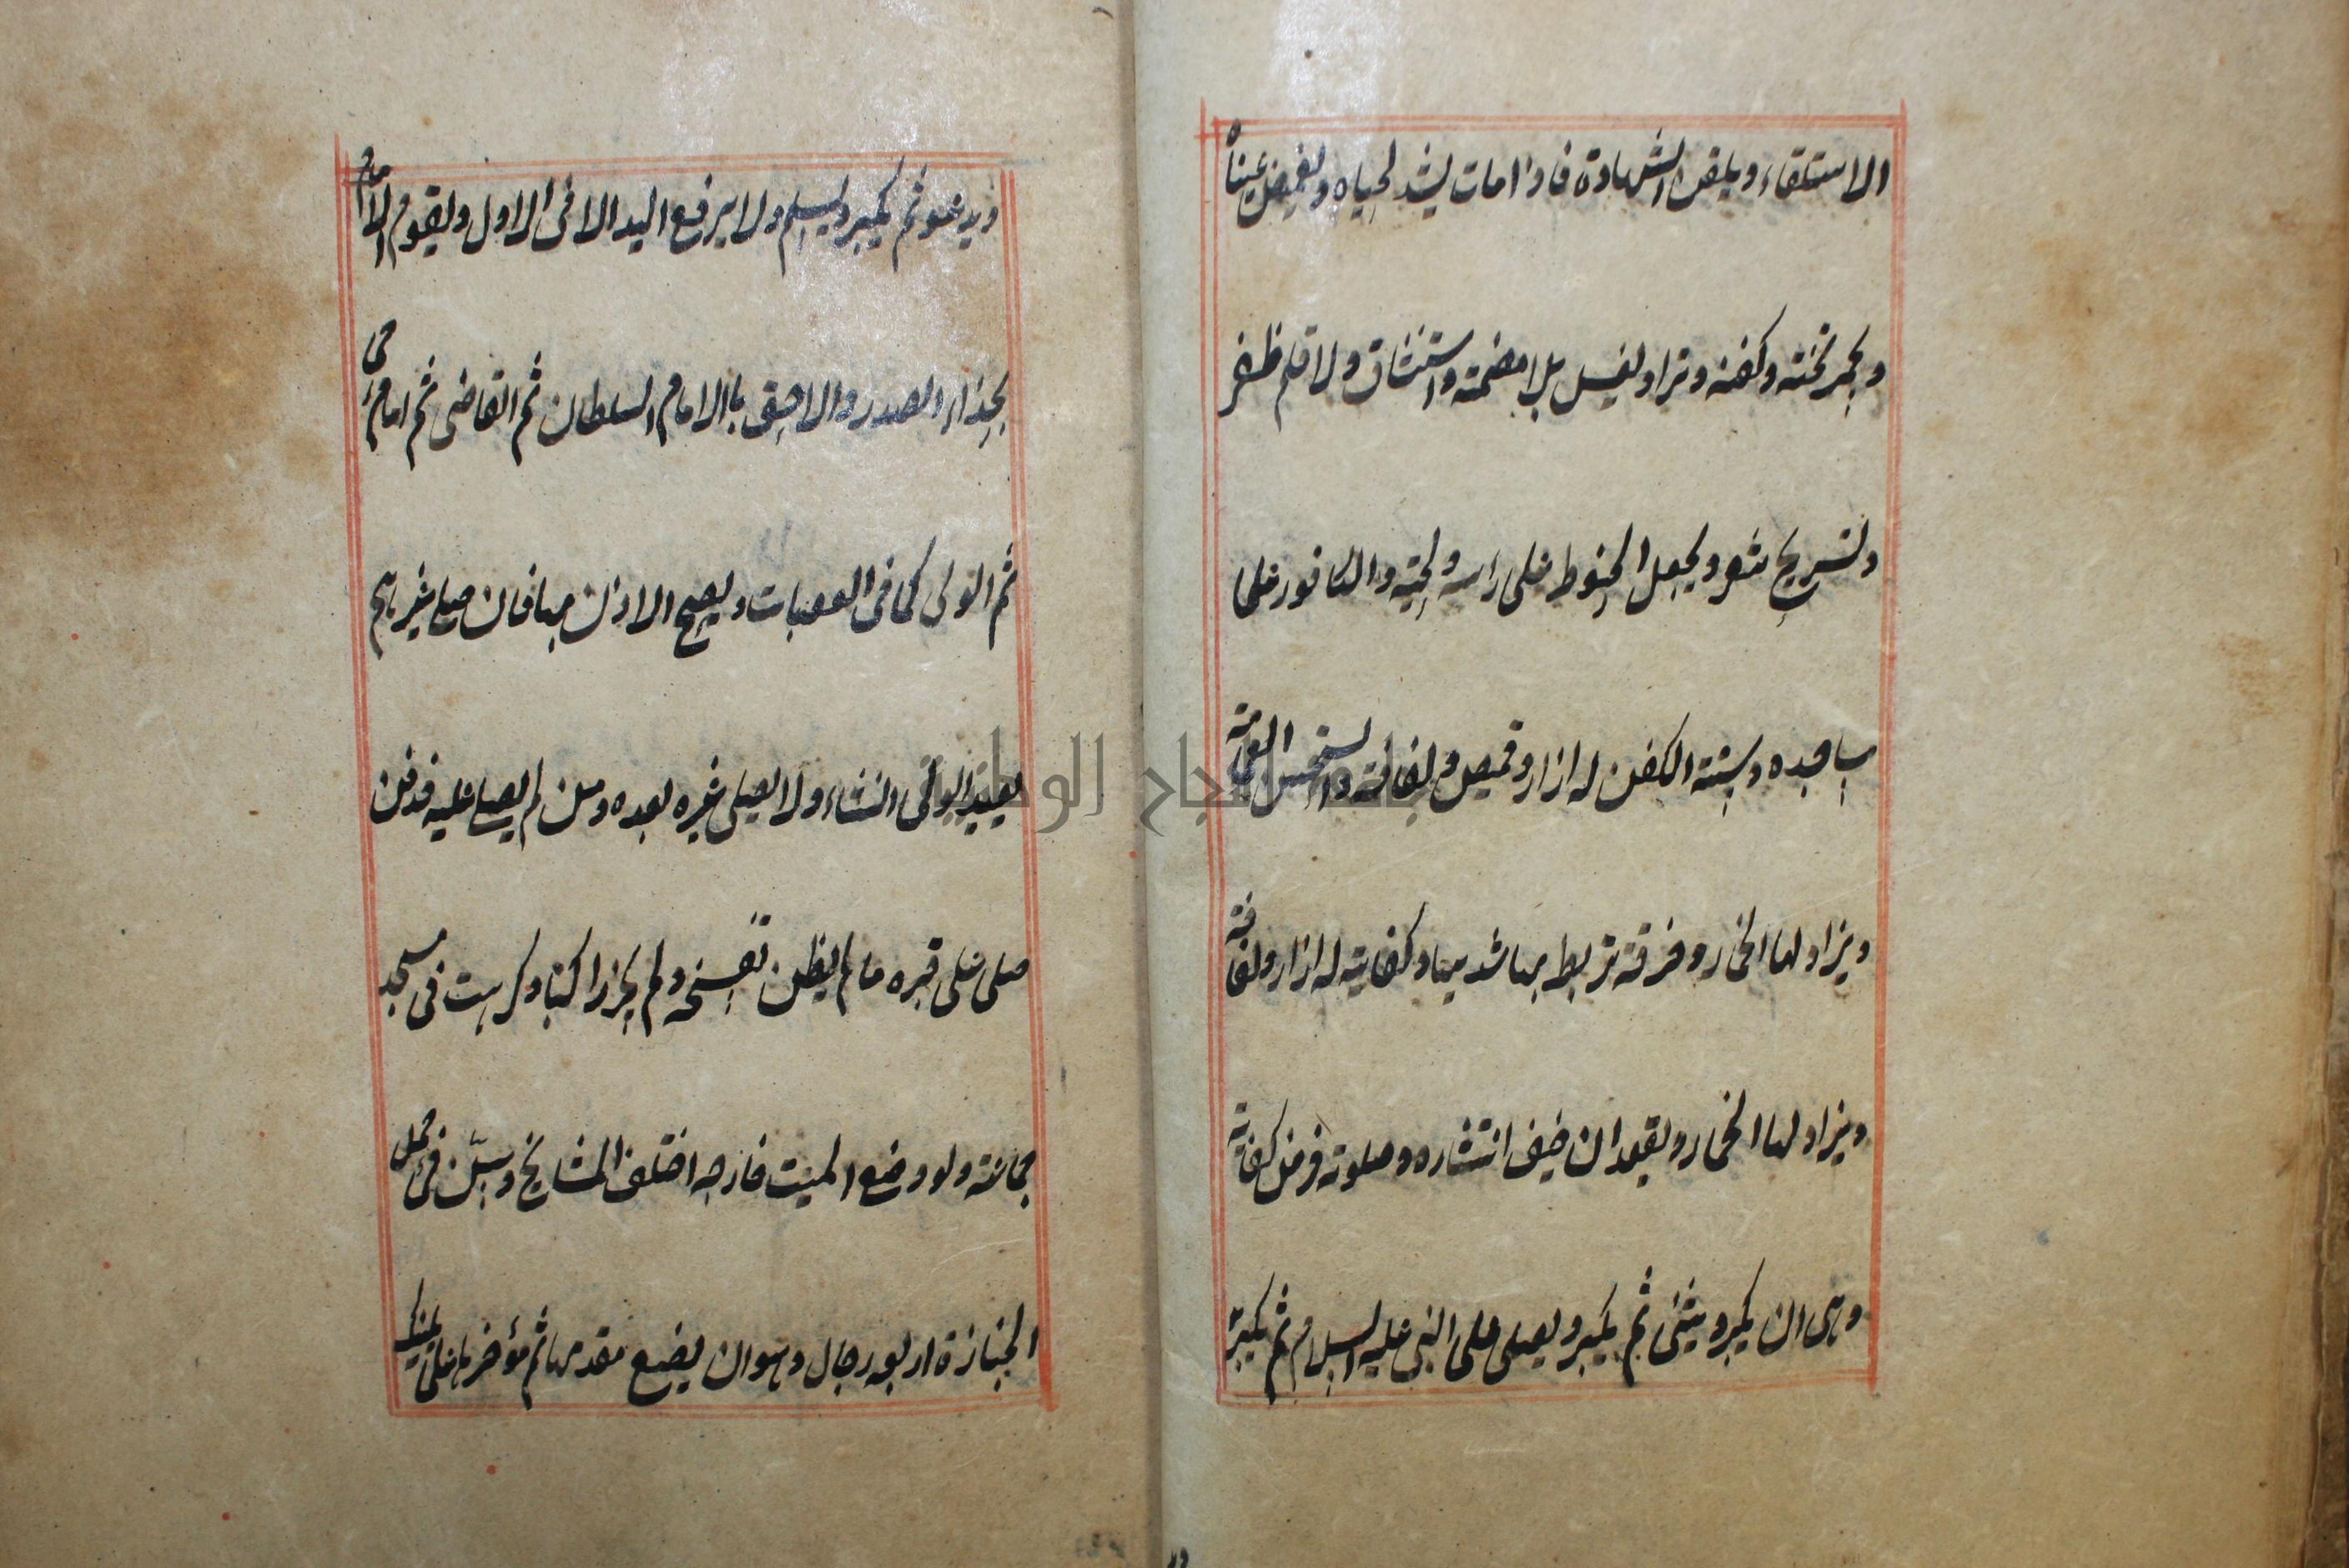 الاستلقاء ويلقن الشهادة فاذا مات يشد لحياه ويغمض عيناه
ويجمر تخته وكفنه وترا ويغسل بلا مضمضة واستنشاق ولا قلم ظفر
وتسريح شعر ويجعل الحنوط على راسه ولحيته والكافور على
مساجده وسنة الكفن له ازار وقميص ولفافة واستحسن العمامة
ويزاد لها الخمار وخرقة تربط بها ثدييها وكفايته له ازار ولفافة
ويزاد لها الخمار ويعقد ان خيف انتشاره وصلوته فرض كفاية
وهى ان يكبر ويثنى ثم يكبر ويصلى على النبى عليه السلام ثم يكبر
ويدعو ثم يكبر ويسلم ولا يرفع اليد الا فى الاول ويقوم الامام
بحذاء الصدر والاحق بالامام السلطان ثم القاضى ثم امام الحى
ثم الولى كما فى العصبات ويصح الاذن بها فان صلى غيرهم
يعيد الولى ان شاء ولا يصلى غيره بعده ومن لم يصل عليه فدفن
صلى على قبره ما لم يظن تفسخه ولم يجز راكبا وكرهت فى مسجد
جماعة ولو وضع الميت خارجه اختلف المشايخ وسن فى حمل
الجنازة اربعه رجال وهو ان يضع مقدمها ثم مؤخرها على يمينك
النجاح الوطنية